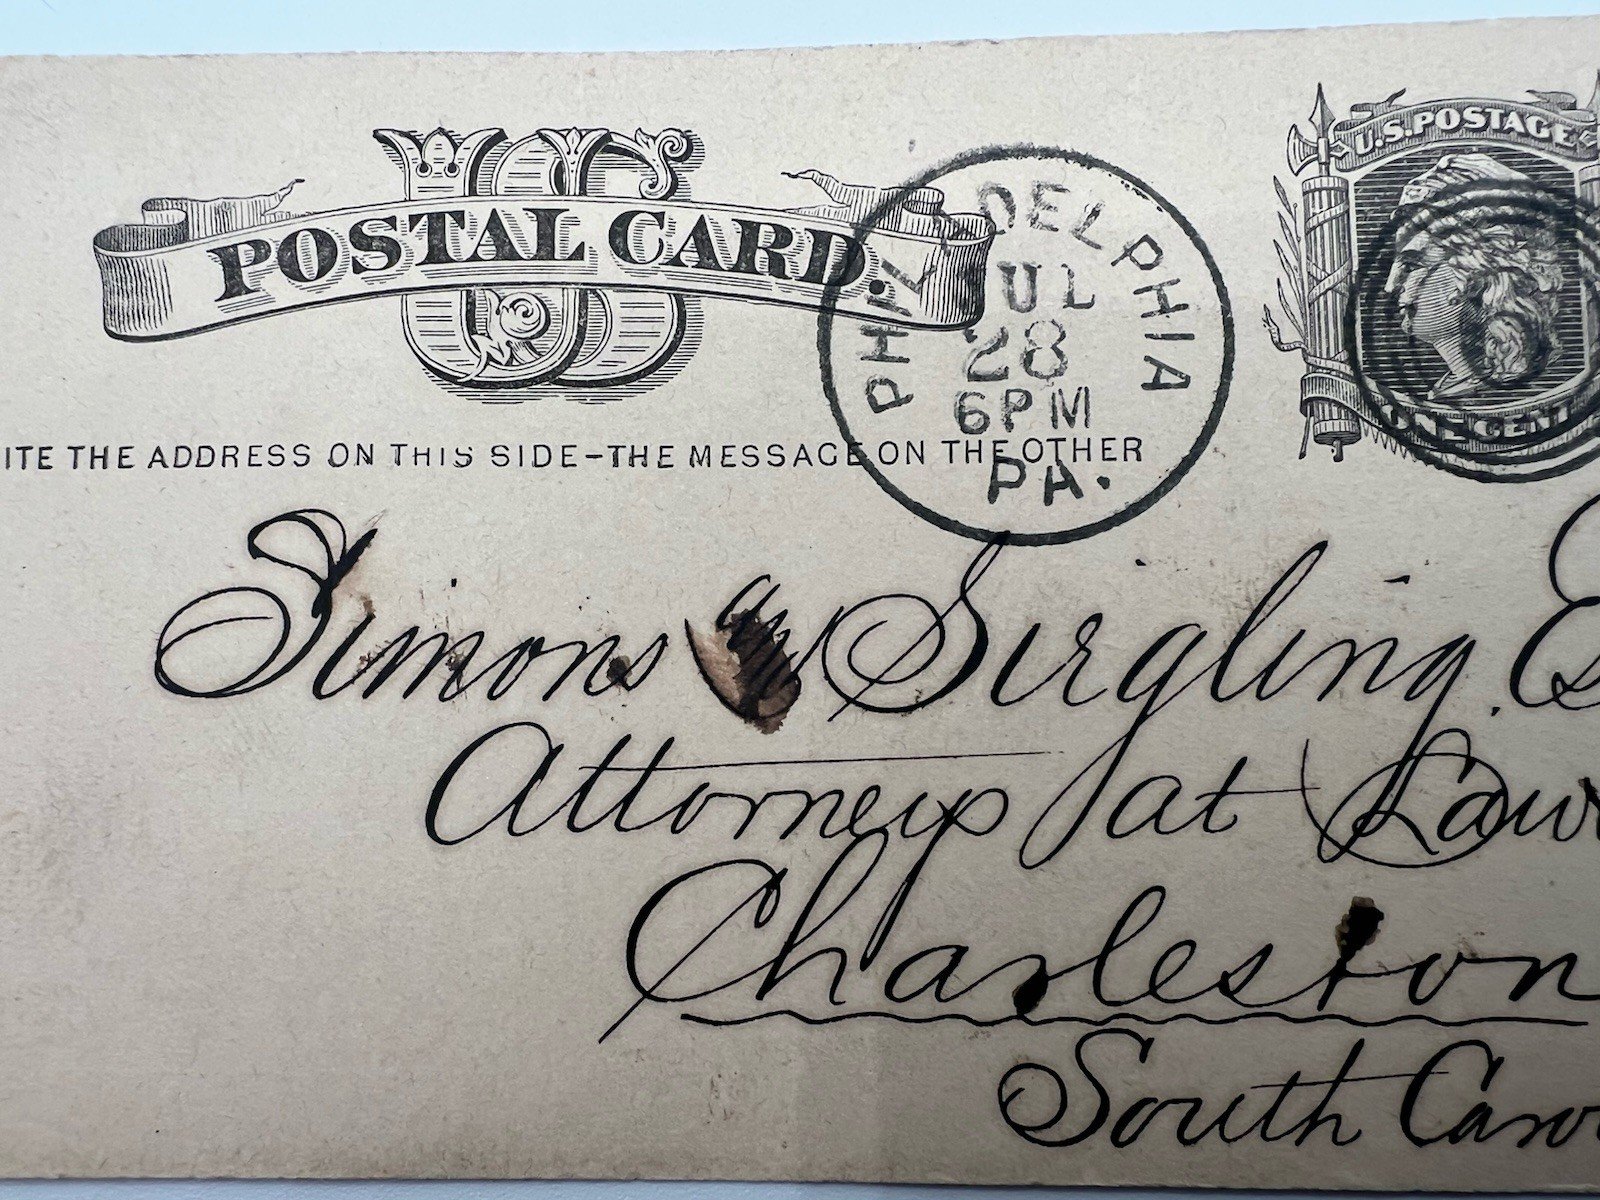 US
POSTAL CARD.
PHILADELPHIA
JUL
28
6PM
PA.
U.S.POSTAGE
ONE CENT
ITE THE ADDRESS ON THIS SIDE–THE MESSAGE ON THE OTHER
Simons Sirgling. Es
Attorneys at Law
Charleston
South Caro